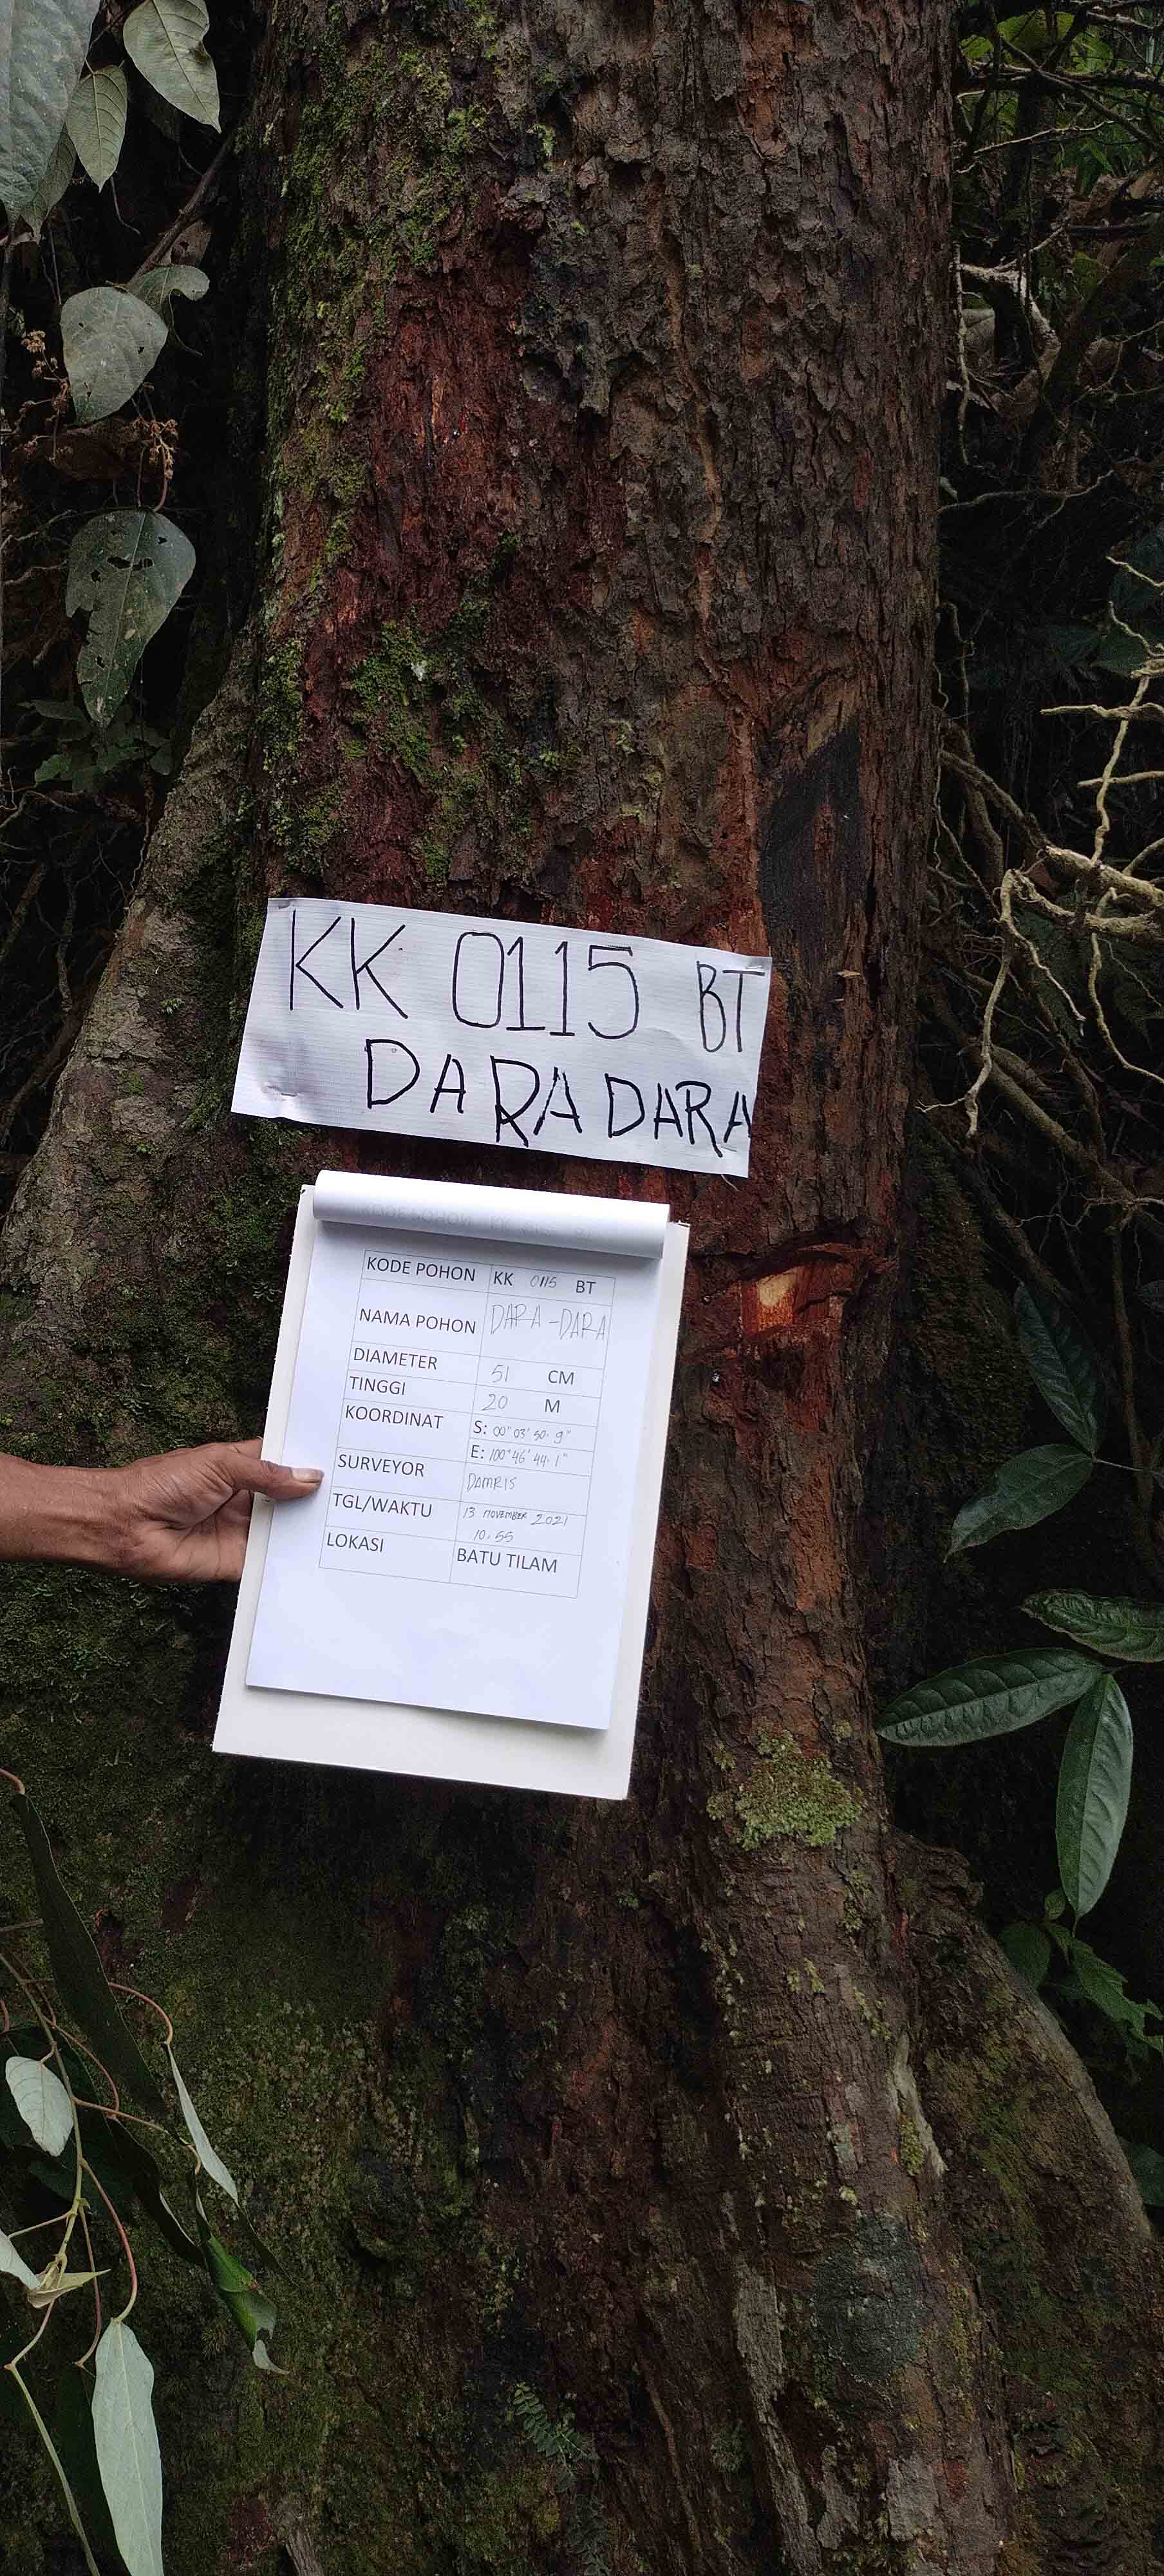 KK 0115 BT
DARA DARA
KODE POHON KK 0115 BT
NAMA POHON DARA-DARA
DIAMETER 51 CM
TINGGI 20 M
KOORDINAT S: 00° 03' 50.9"
E: 100° 46' 44.1"
SURVEYOR DAMRIS
TGL/WAKTU 13 NOVEMBER 2021
10.55
LOKASI BATU TILAM